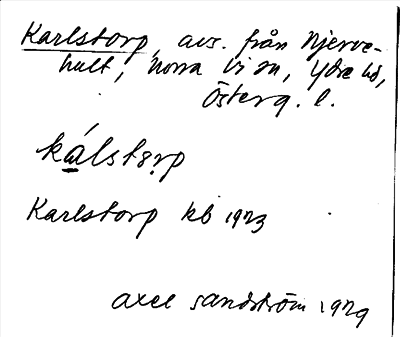 Karlstorp, avs. från Njerve-
hult, Norra Vi sn, Ydre hd,
Österg. l.
kálstørp
Karlstorp kb 1923
Axel Sandström 1929